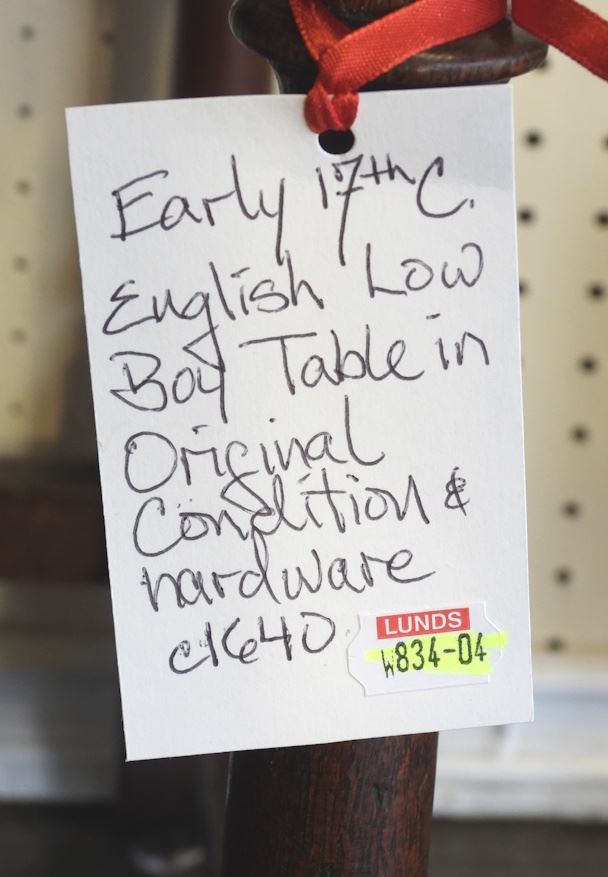 Early 17th C.
English Low
Boy Table in
Original
Condition &
hardware
c1640
LUNDS
W834-04